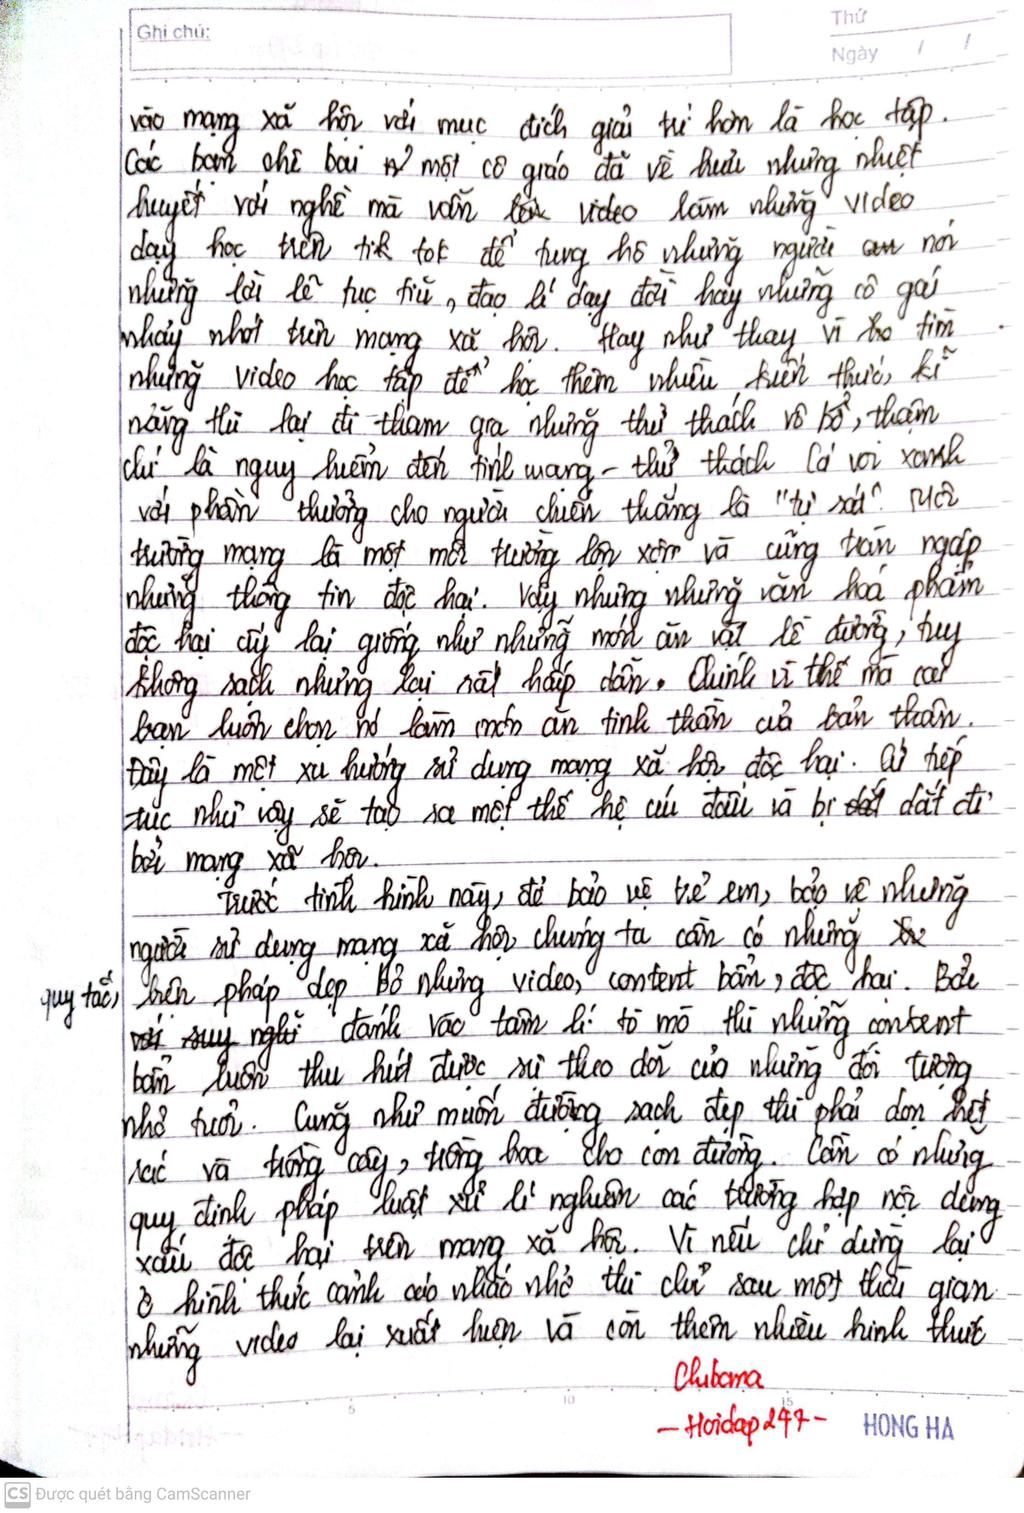 Ghi chú:
Thứ
Ngày / /
vào mạng xã hội với mục đích giải trí hơn là học tập.
Các bạn chê bai một cô giáo đã về hưu nhưng nhiệt
huyết với nghề mà vẫn video làm những video
dạy học trên tik tok để tung hô những người nói
những lời lẽ tục tĩu, đạo lí dạy đời hay những cô gái
nhảy nhót trên mạng xã hội. Hay như thay vì tìm
những video học tập để học thêm nhiều kiến thức, kĩ
năng thì lại đi tham gia những thử thách vô bổ, thậm
chí là nguy hiểm đến tính mạng - thử thách Cá voi xanh
với phần thưởng cho người chiến thắng là "tự sát". Môi
trường mạng là một môi trường lộn xộn và cũng tràn ngập
những thông tin độc hại. Vậy nhưng những văn hoá phẩm
độc hại ấy lại giống như những món ăn vặt lề đường, tuy
không sạch nhưng lại rất hấp dẫn. Chính vì thế mà các
bạn luôn chọn nó làm món ăn tinh thần của bản thân.
Đây là một xu hướng sử dụng mạng xã hội độc hại. Cứ tiếp
tục như vậy sẽ tạo ra một thế hệ cúi đầu và bị dắt đi
bởi mạng xã hội.
Trước tình hình này, để bảo vệ trẻ em, bảo vệ những
người sử dụng mạng xã hội chúng ta cần có những
quy tắc, biện pháp dẹp bỏ những video, content bẩn, độc hại. Bởi
với suy nghĩ đánh vào tâm lí tò mò thì những content
bẩn luôn thu hút được sự theo dõi của những đối tượng
nhỏ tuổi. Cũng như muốn đường sạch đẹp thì phải dọn hết
rác và trồng cây, trồng hoa cho con đường. Cần có những
quy định pháp luật xử lí nghiêm các trường hợp nội dung
xấu độc hại trên mạng xã hội. Vì nếu chỉ dừng lại
ở hình thức cảnh cáo nhắc nhở thì chỉ sau một thời gian
những video lại xuất hiện và còn thêm nhiều hình thức
Chibama
- Hoidap247 -
5 10 15
HONG HA
CS Được quét bằng CamScanner